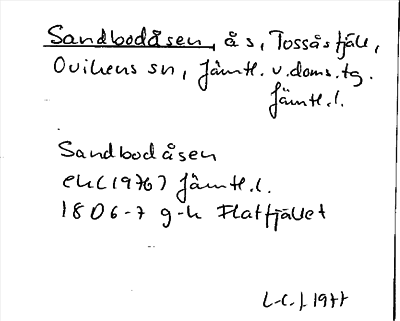 Sandbodåsen, ås, Tossåsfjäll,
Ovikens sn, Jämtl. v. doms. tg.
Jämtl. l.
Sandbodåsen
ek (1976) Jämtl. l.
18D 6-7 g-h Flatfjället
L-C. J. 1977